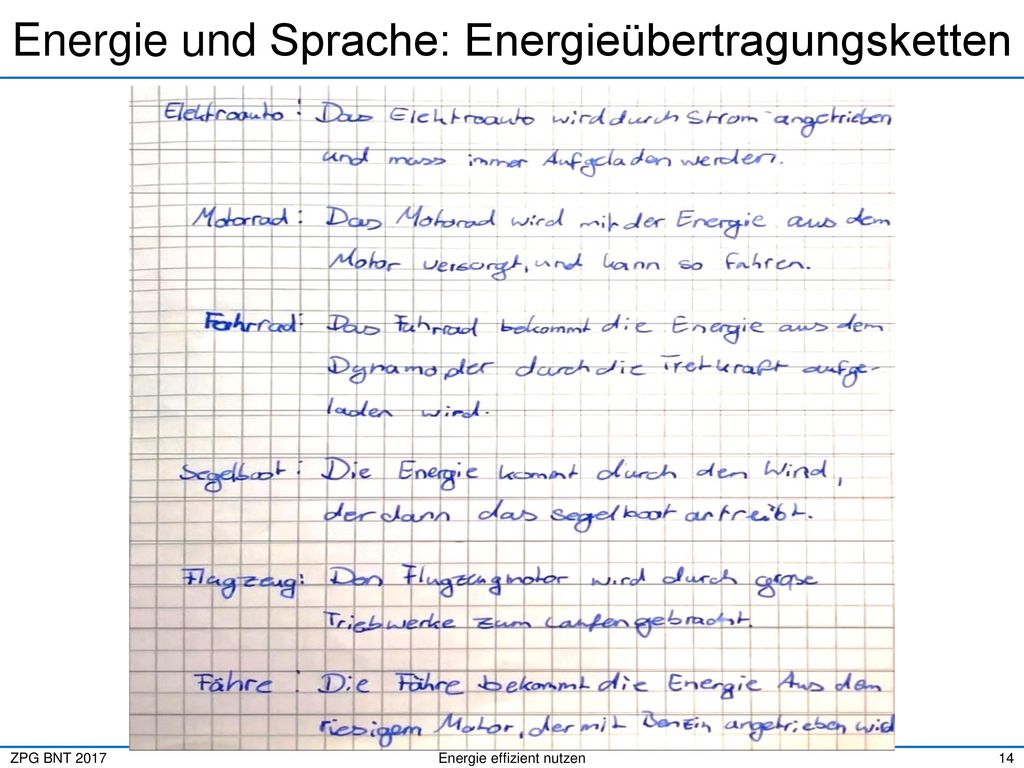 Energie und Sprache: Energieübertragungsketten
Elektroauto: Das Elektroauto wird durch Strom angetrieben
und muss immer Aufgeladen werden.
Motorrad: Das Motorad wird mit der Energie aus dem
Motor versorgt, und kann so fahren.
Fahrrad: Das Fahrrad bekommt die Energie aus dem
Dynamo, der durch die Tretkraft aufge-
laden wird.
Segelboot: Die Energie kommt durch den Wind,
der dann das Segelboot antreibt.
Flugzeug: Den Flugzeugmotor wird durch große
Triebwerke zum Laufen gebracht.
Fähre: Die Fähre bekommt die Energie Aus dem
riesigem Motor, der mit Benzin angetrieben wird
ZPG BNT 2017
Energie effizient nutzen
14